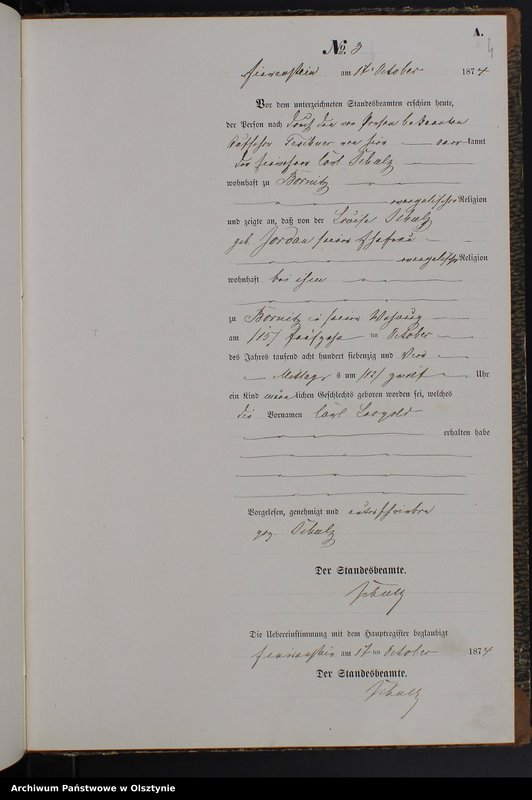 A.
4
No. 3
am 17t October 1874
Vor dem unterzeichneten Standesbeamten erschien heute,
der Person nach durch den von Person bekannten
von hier kannt
der Carl Schulz
wohnhaft zu Bornitz
evangelischer Religion
und zeigte an, daß von der Louise Schulz
geb. Jordan seiner Ehefrau
evangelischer Religion
wohnhaft bei ihm
zu Bornitz in seiner Wohnung
am /15/ fünfzehn ten October
des Jahres tausend acht hundert siebenzig und vier
Mittags um /12/ zwölf Uhr
ein Kind männlichen Geschlechts geboren worden sei, welches
die Vornamen Carl Leopold
erhalten habe
Vorgelesen, genehmigt und unterschrieben
gez. Schulz
Der Standesbeamte.
Die Uebereinstimmung mit dem Hauptregister beglaubigt
am 17ten October 1874
Der Standesbeamte.
Archiwum Państwowe w Olsztynie